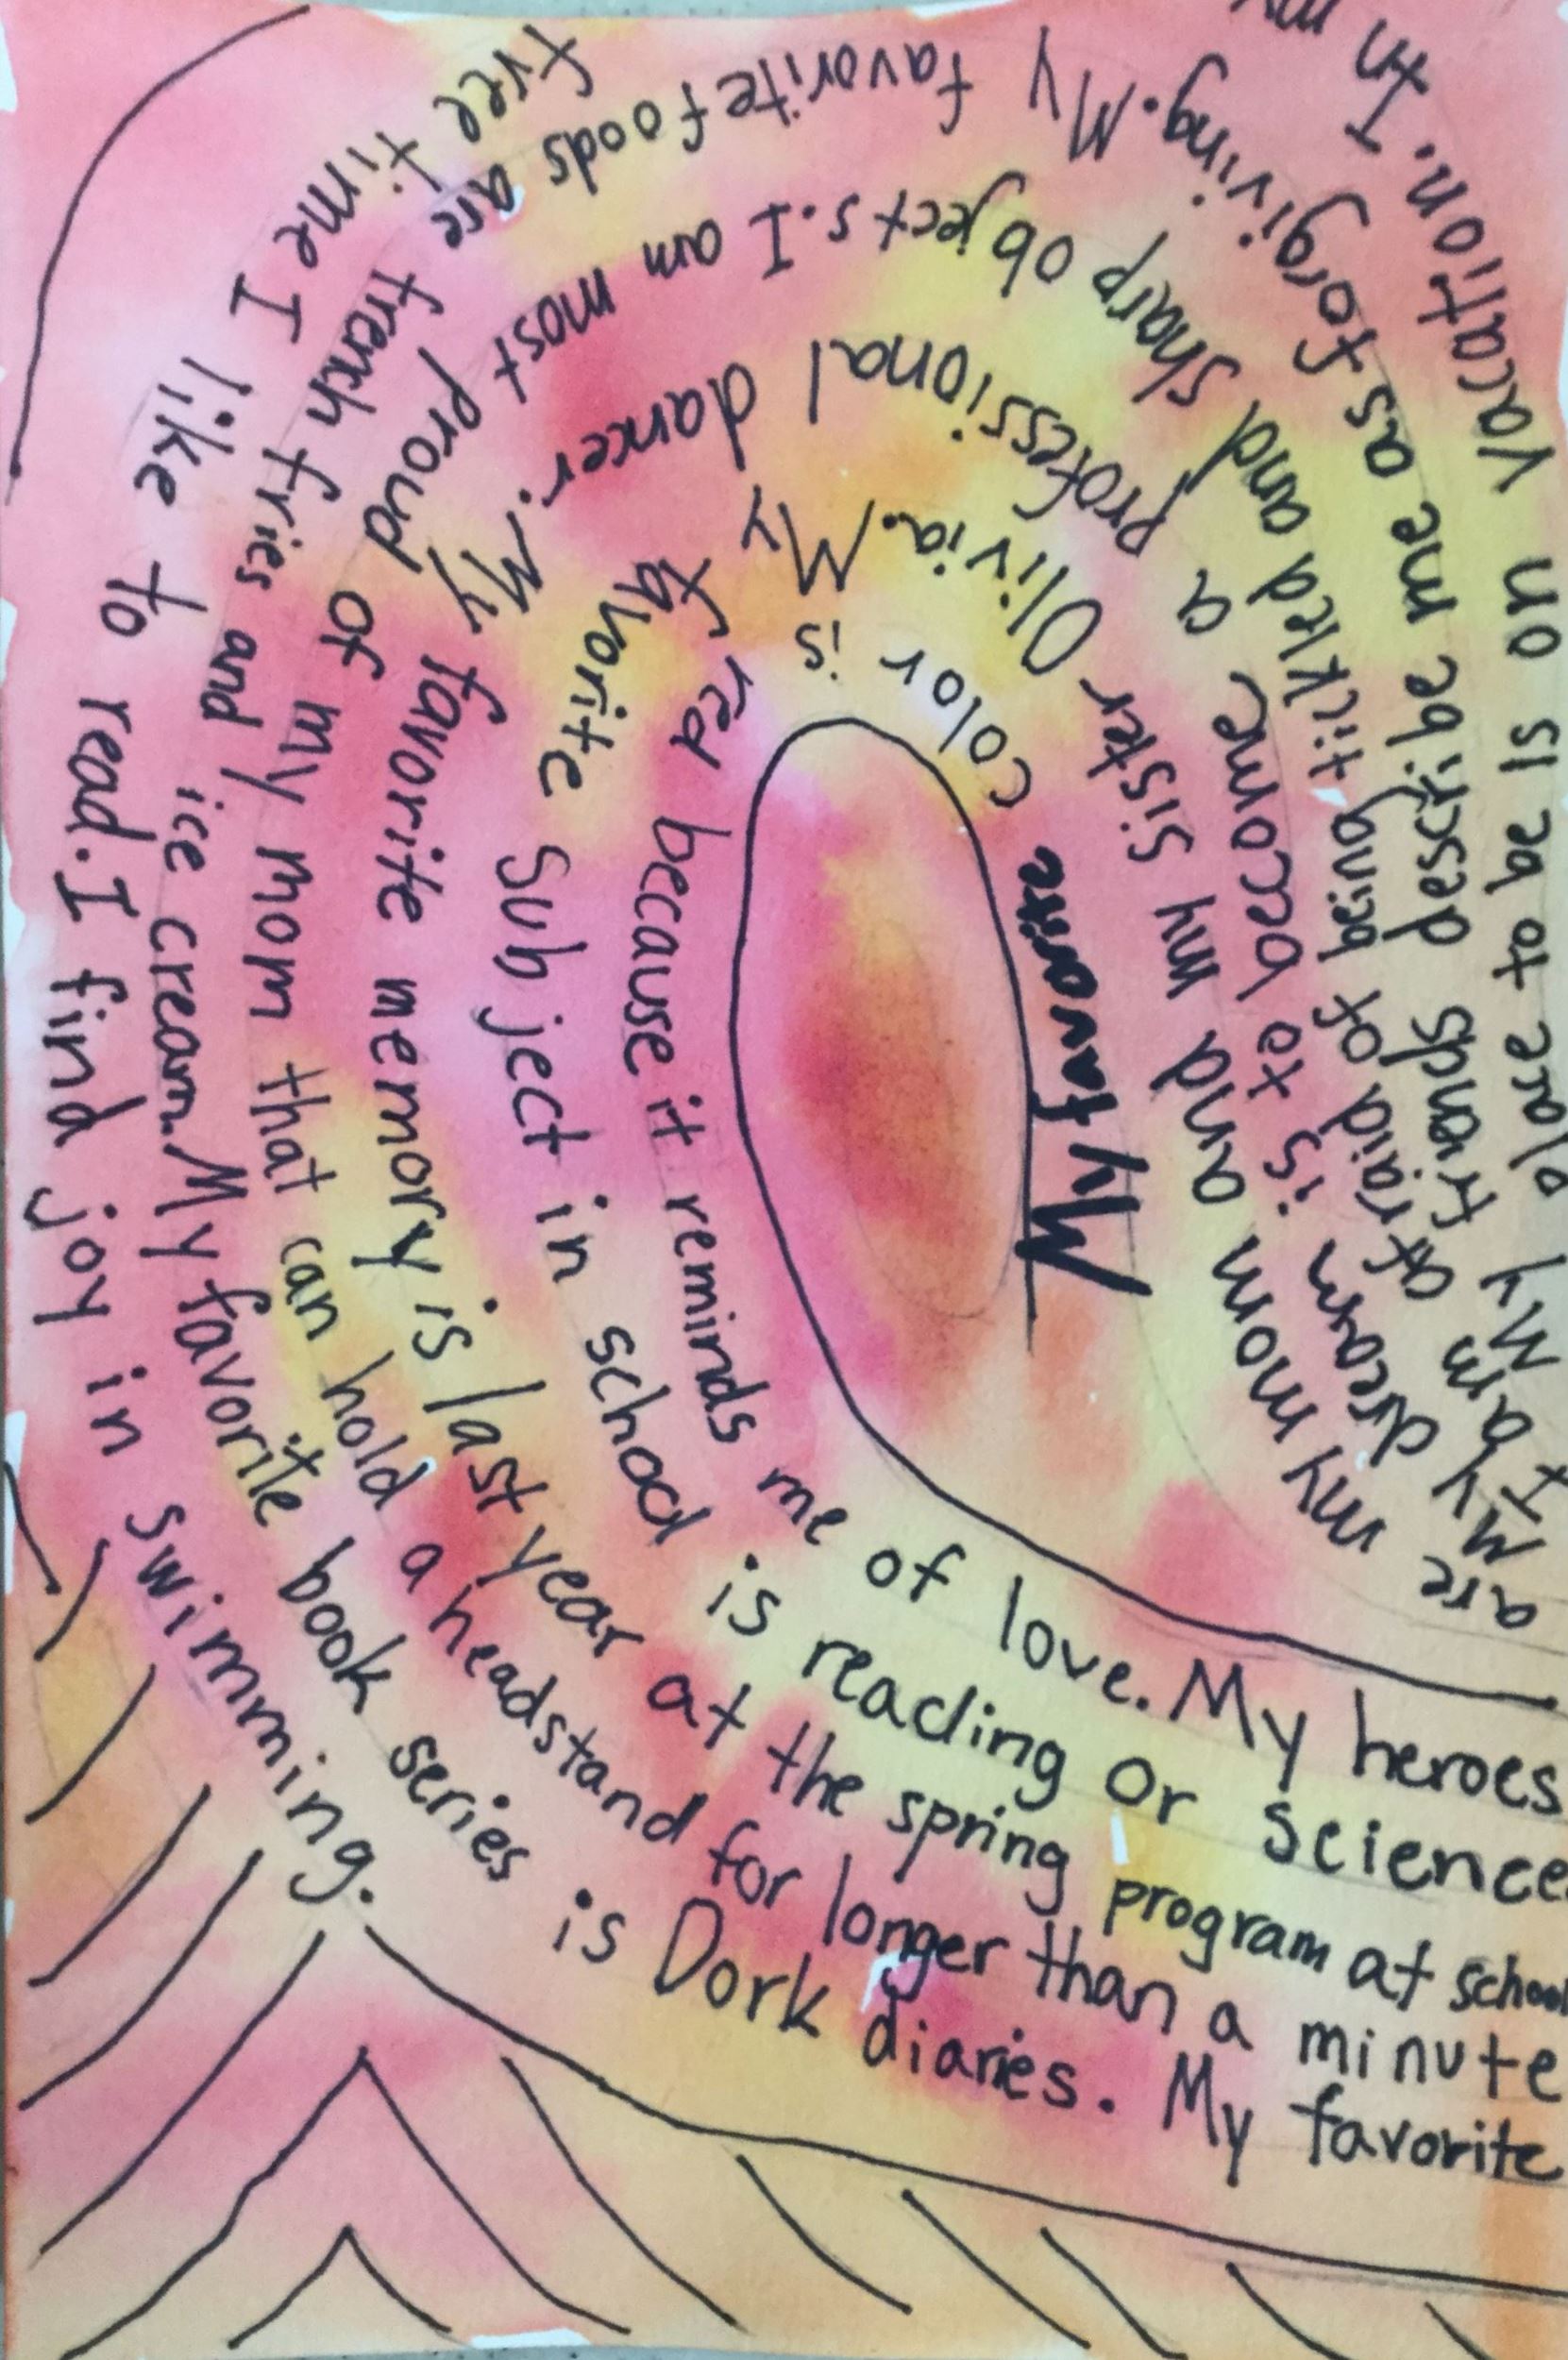 My favorite color is red because it reminds me of love. My heroes
are my mom and my sister Olivia. My favorite subject in school is reading or science.
My dream is to become a professional dancer. My favorite memory is last year at the spring program at school
I am afraid of being tickled and sharp objects. I am most proud of my mom that can hold a headstand for longer than a minute
My friends describe me as forgiving. My favorite foods are french fries and ice cream. My favorite book series is Dork diaries. My favorite
place to be is on vacation. In my free time I like to read. I find joy in swimming.